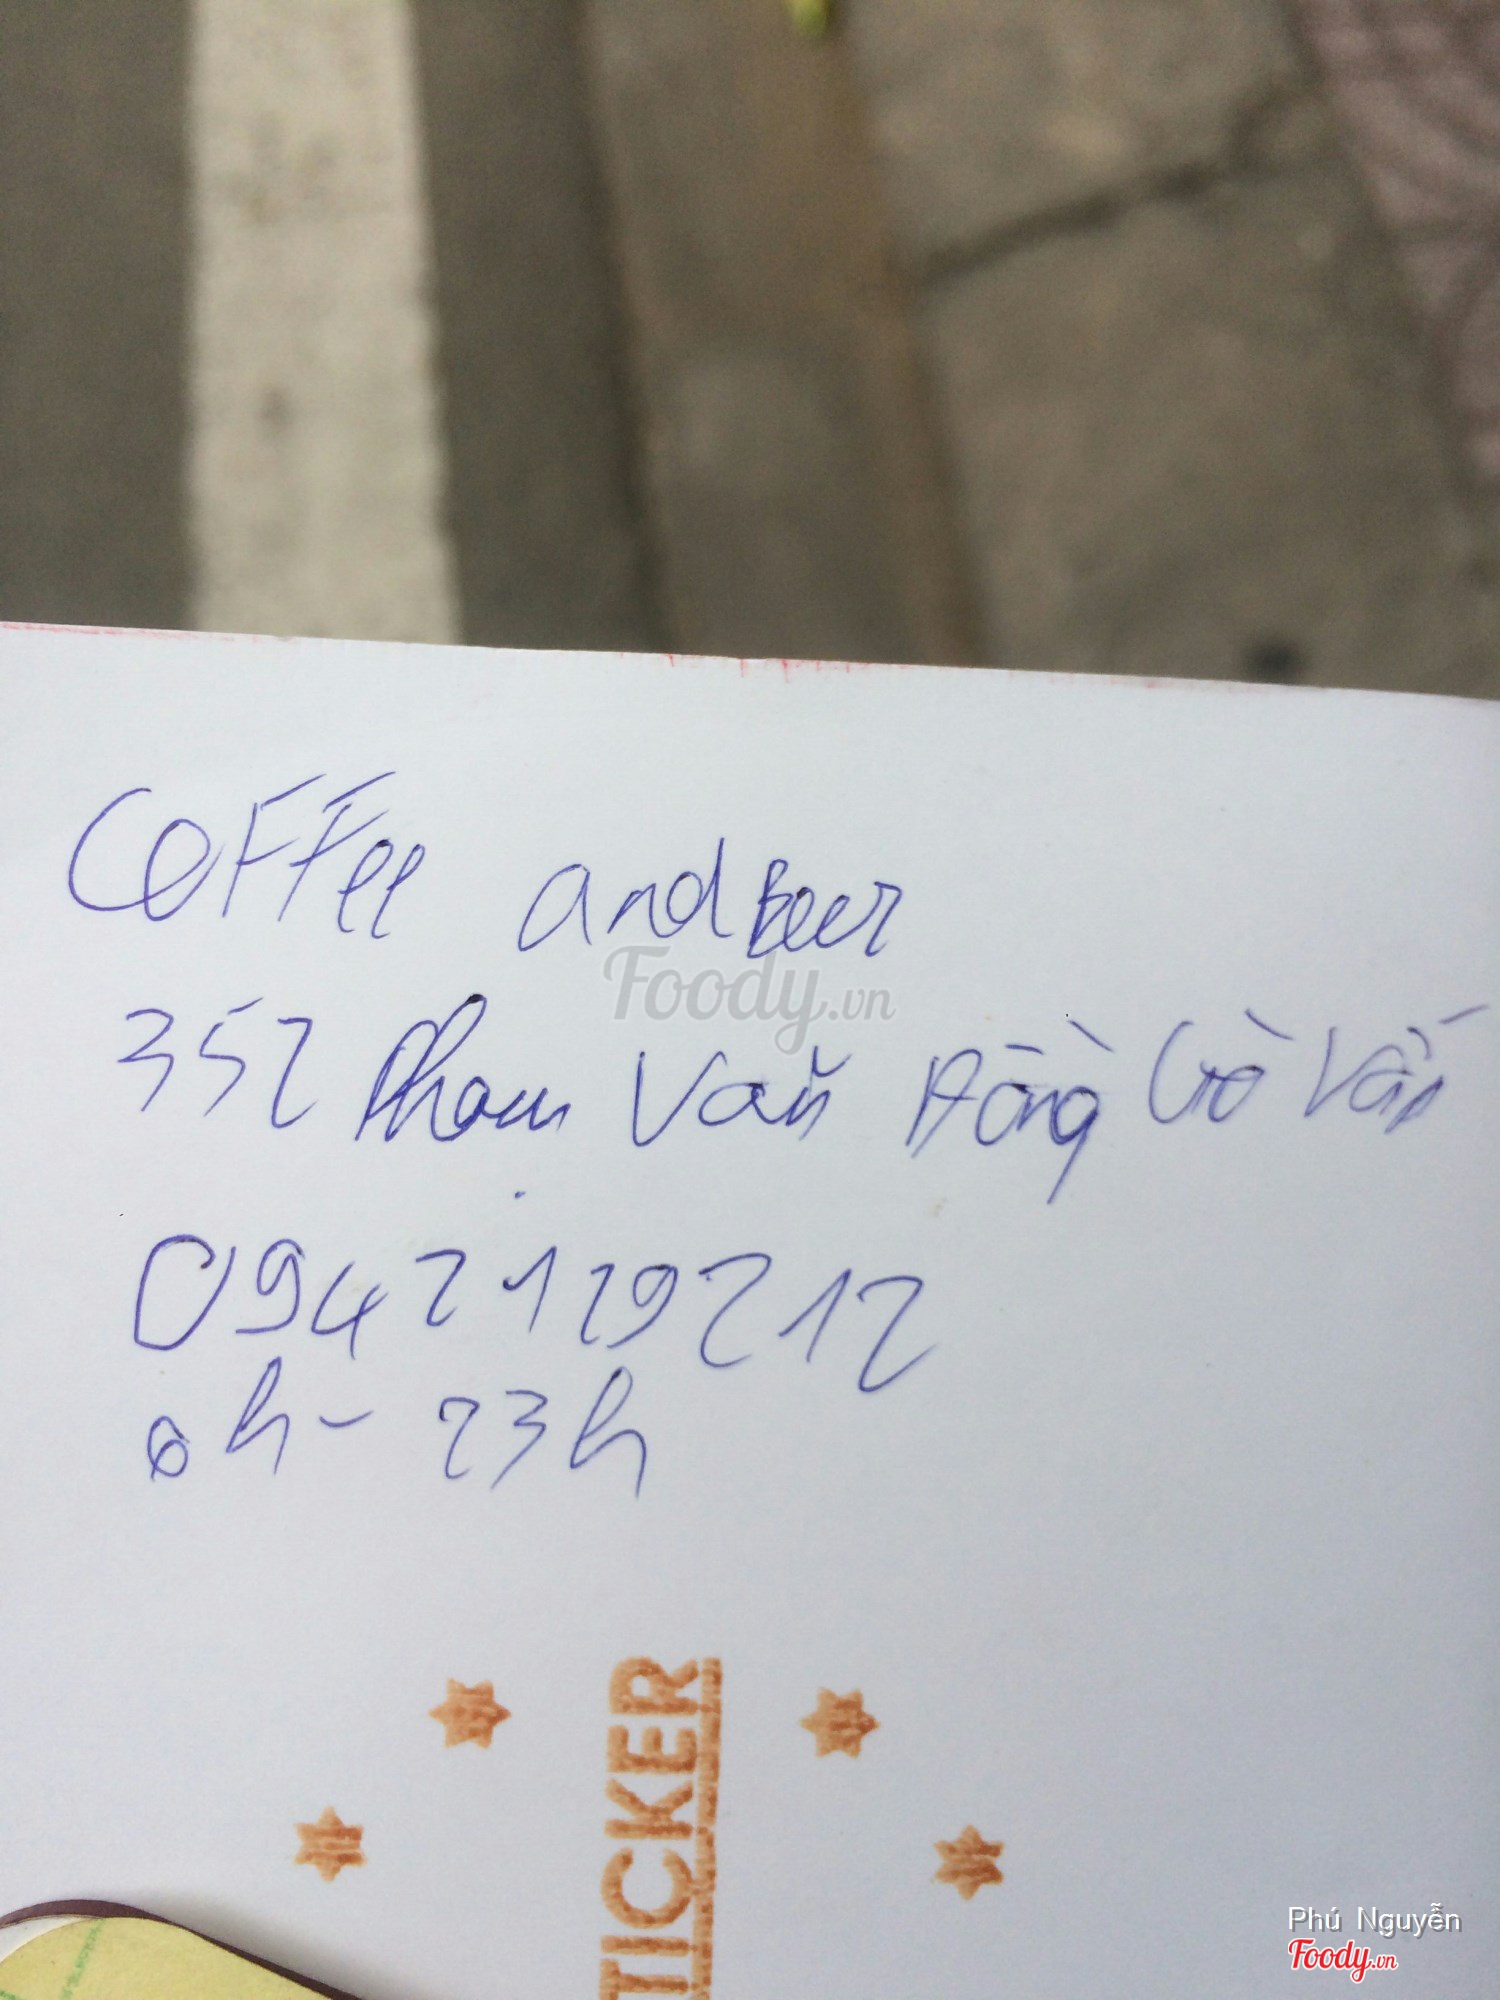 Coffee and Beer
352 Phạm Văn Đồng Gò Vấp
0942129212
6h - 23h
Foody.vn
TICKER
Phú Nguyễn
Foody.vn